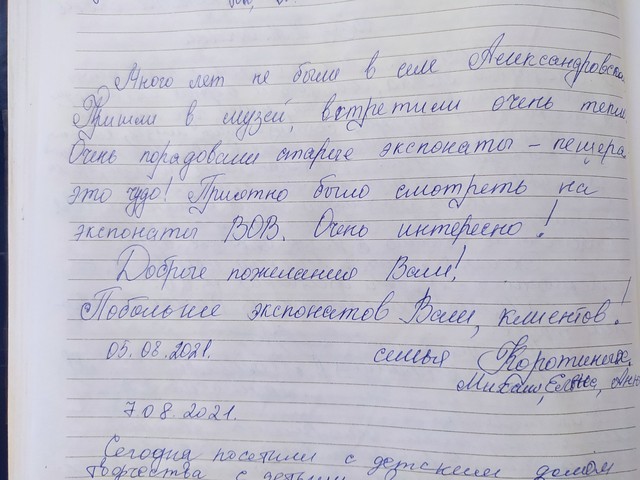 Много лет не были в селе Александровско
Пришли в музей, встретили очень тепло
Очень порадовали старые экспонаты - пещера
это чудо! Приятно было смотреть на
экспонаты ВОВ. Очень интересно!
Доброго пожелания Вам!
Побольше экспонатов Вам, клиентов!
05.08.2021. семья
Михаил, Елена,
7 08.2021.
Сегодня посетили с детским домом
творчества с детьми